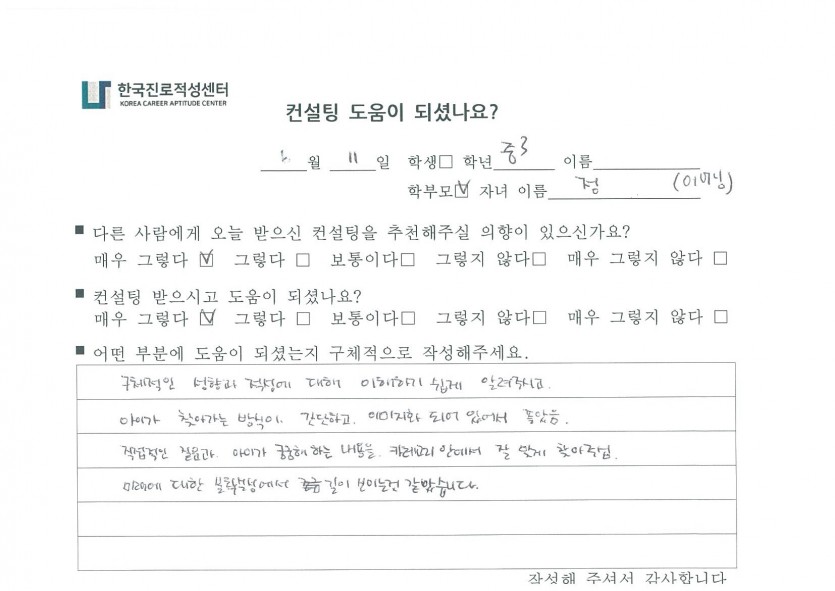 한국진로적성센터
KOREA CAREER APTITUDE CENTER
컨설팅 도움이 되셨나요?
월 11 일 학생□ 학년 중3 이름
학부모☑ 자녀 이름 점
■ 다른 사람에게 오늘 받으신 컨설팅을 추천해주실 의향이 있으신가요?
매우 그렇다 ☑ 그렇다 □ 보통이다□ 그렇지 않다□ 매우 그렇지 않다 □
■ 컨설팅 받으시고 도움이 되셨나요?
매우 그렇다 ☑ 그렇다 □ 보통이다□ 그렇지 않다□ 매우 그렇지 않다 □
■ 어떤 부분에 도움이 되셨는지 구체적으로 작성해주세요.
구체적인 성향과 적성에 대해 이해하기 쉽게 알려주시고.
아이가 찾아가는 방식이 간단하고. 이미지화 되어 있어서 좋았음.
직접적인 질음과. 아이가 궁금해 하는 내용을. 카테고리 안에서 잘 맞게 찾아주심.
미래에 대한 불확실성에서 길이 보이는것 같았습니다.
작성해 주셔서 감사합니다